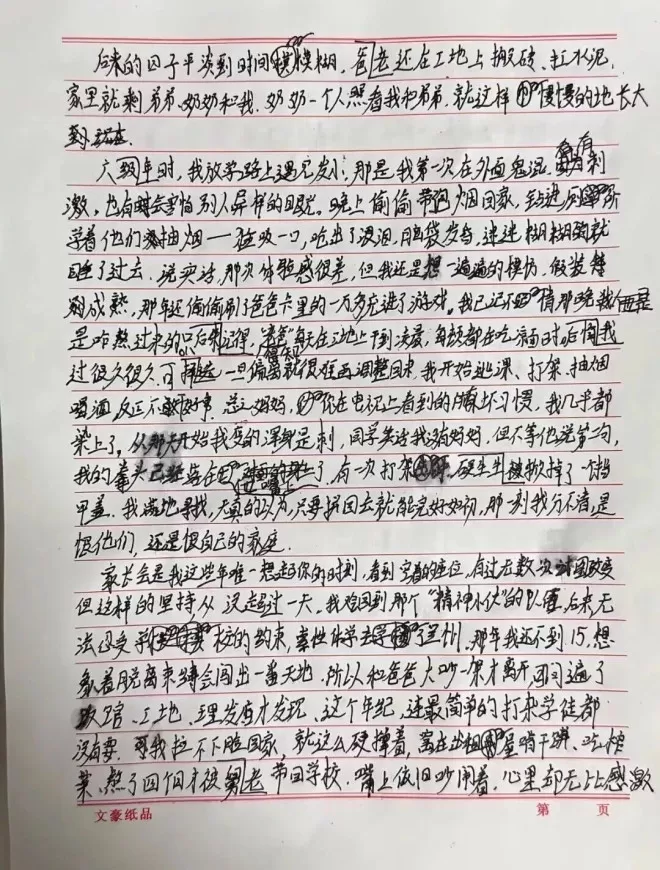 后来的日子平淡到时间模模糊,爸老还在工地上搬砖、扛水泥,
家里就剩弟弟、奶奶和我.奶奶一个人照看我和弟弟.就这样慢慢的地长大
到现在.
六级年时,我放学路上遇见发小,那是我第一次在外面鬼混.有刺
激,也有时会害怕别人异样的眼光。晚上偷偷带包烟回家,
学着他们抽烟一猛吸一口,呛出了眼泪,脑袋发昏,迷迷糊糊就
睡了过去.说实话,那次体验感很差,但我还是想一遍遍的模仿.假装特
别成熟,那年还偷偷刷了爸爸卡里的一万多充进了游戏。我已记不清那晚我
是咋熬过来的只记得,爸爸每天在工地上干到凌晨,每顿都在吃
过很久很久.可一旦偏离就很难再调整回来.我开始逃课、打架、抽烟
喝酒反正不做好事.总之妈妈,你在电视上看到的所有坏习惯,我几乎都
染上了。从那天开始我变的浑身是刺,同学笑话我没有妈妈,但不等他说第二句,
我的拳头已经落在了,有一次打架,硬生生被掀掉了一个指
甲盖.我满地寻找,天真的以为,只要拼回去就能完好如初,那一刻我分不清是
恨他们,还是恨自己的家庭.
家长会是我这些年唯一想起你的时刻,看到空着的座位,有过无数次试图改变
但这样的坚持从没超过一天.我又回到那个“精神小伙”的队伍后来无
法忍受学校的约束,索性休学去了兰州.那年我还不到15.想
象着脱离束缚会闯出一番天地.所以和爸爸大吵一架才离开问遍了
饭馆、工地、理发店才发现、这个年纪,连最简单的打杂学徒都
没有要.可我拉不下脸回家,就这么硬撑着,窝在出租屋啃干饼、吃榨
菜、熬了四个月才被舅老带回学校.嘴上依旧吵闹着,心里却无比感激
文豪纸品
第 页